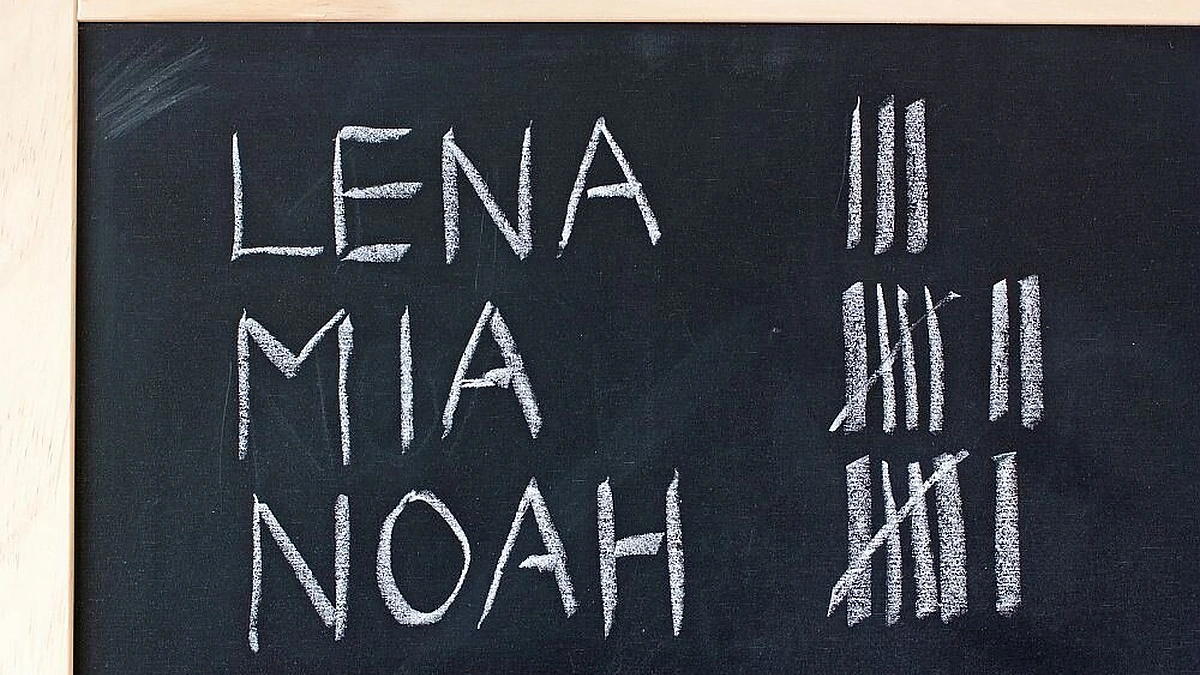 LENA |||
MIA 卌 ||
NOAH 卌 |